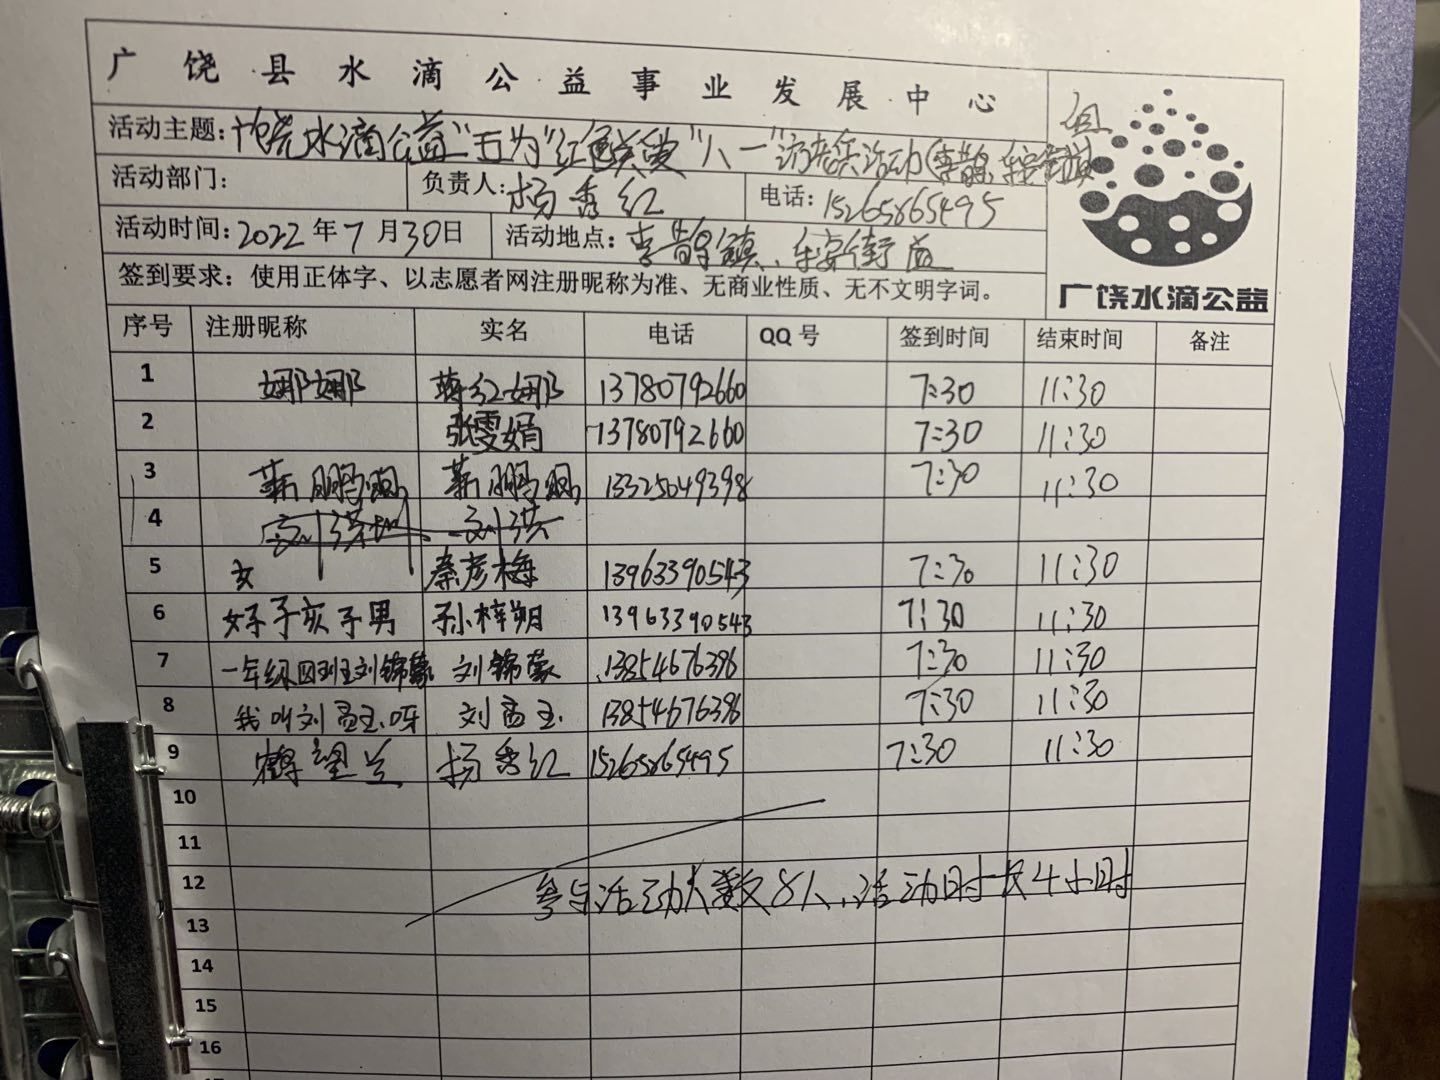 广饶县水滴公益事业发展中心
活动主题:广饶水滴公益"五为"红色关爱"八一"访老兵活动(李鹊、乐安街道 组
活动部门: 负责人:杨秀红 电话:15265865495
活动时间:2022年7月30日 活动地点:李鹊镇、乐安街道
签到要求:使用正体字、以志愿者网注册昵称为准、无商业性质、无不文明字词。
广饶水滴公益
序号 注册昵称 实名 电话 QQ号 签到时间 结束时间 备注
1 娜娜 蒋红娜 13780792660 7:30 11:30
2 张雯娟 13780792660 7:30 11:30
3 鹏 鹏 13325049398 7:30 11:30
4 刘洪 刘洪
5 玄 秦彦梅 13963390543 7:30 11:30
6 好子子亥子男 孙梓朔 13963390543 7:30 11:30
7 一年级四班刘锦蒙 刘锦蒙 13854676396 7:30 11:30
8 我叫刘孟玉呀 刘孟玉 13854676396 7:30 11:30
9 鹤望兰 杨秀红 15265865495 7:30 11:30
10
11
12 参与活动人数8人,活动时长4小时
13
14
15
16